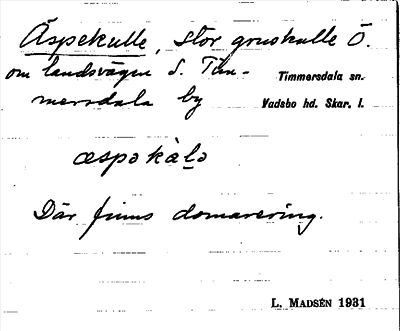 Äspekulle, stor gruskulle Ö.
om landsvägen S. Tim-
mersdala by
Timmersdala sn.
Vadsbo hd. Skar. l.
æspəkàlə
Där finns domarering.
L. MADSÉN 1931